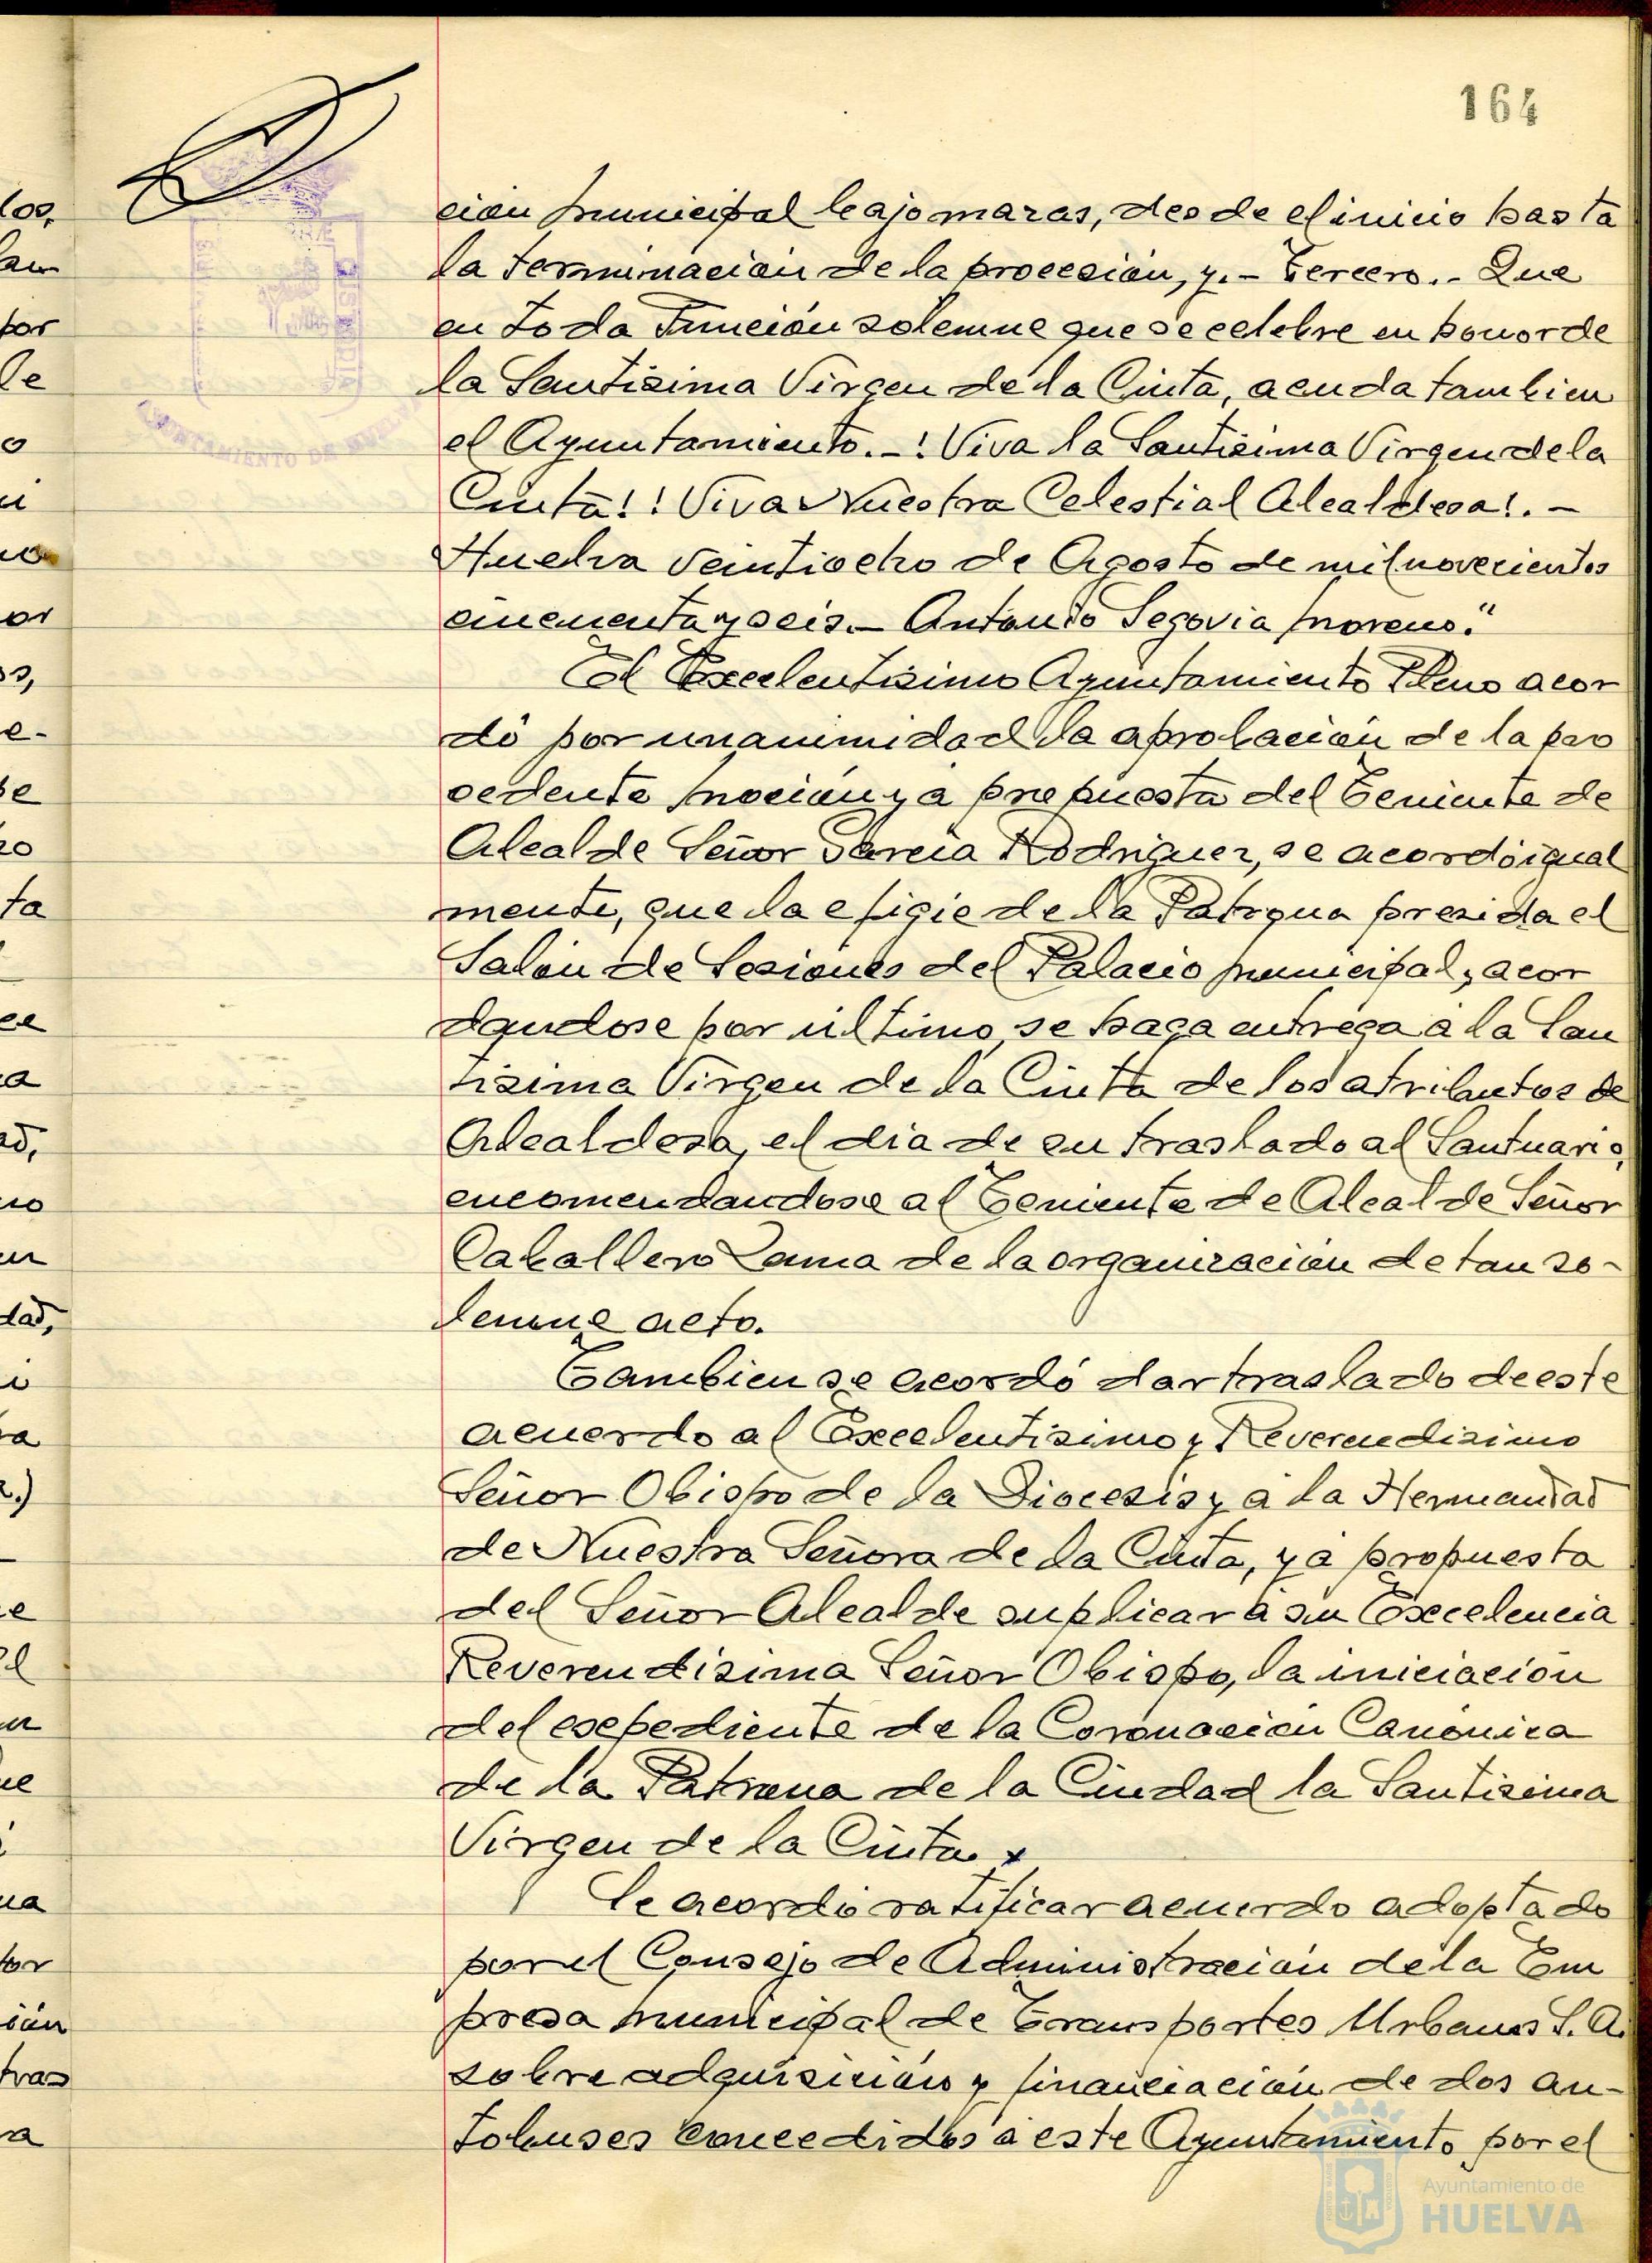 164
cion municipal bajo mazas, desde el inicio hasta
la terminacion de la procesión, y.- Tercero.- Que
en toda Función solemne que se celebre en honor de
la Santisima Virgen de la Cinta, acuda tambien
el Ayuntamiento.-! Viva la Santisima Virgen de la
Cinta!! Viva Nuestra Celestial Alcaldesa!.-
Huelva veintiocho de Agosto de mil novecientos
cincuenta y seis.- Antonio Segovia Moreno."
El Excelentisimo Ayuntamiento Pleno acor
dó por unanimidad la aprobación de la pre
cedente moción y a propuesta del Teniente de
Alcalde Señor Garcia Rodriguez, se acordó igual
mente, que la efigie de la Patrona presida el
Salón de Sesiones del Palacio municipal, acor
dandose por último, se haga entrega a la San
tisima Virgen de la Cinta de los atributos de
Alcaldesa, el dia de su traslado al Santuario,
encomendandose al Teniente de Alcalde Señor
Caballero Lama de la organización de tan so-
lemne acto.
Tambien se acordó dar traslado de este
acuerdo al Excelentisimo y Reverendisimo
Señor Obispo de la Diocesis y a la Hermandad
de Nuestra Señora de la Cinta, y a propuesta
del Señor Alcalde suplicar a su Excelencia
Reverendisima Señor Obispo, la iniciación
del expediente de la Coronacion Canónica
de la Patrona de la Ciudad la Santisima
Virgen de la Cinta. x
Se acordó ratificar acuerdo adoptado
por el Consejo de Administración de la Em
presa municipal de Transportes Urbanos S.A.
sobre adquisición y financiación de dos au-
tobuses concedidos a este Ayuntamiento por el
AYUNTAMIENTO DE HUELVA
Ayuntamiento de
HUELVA